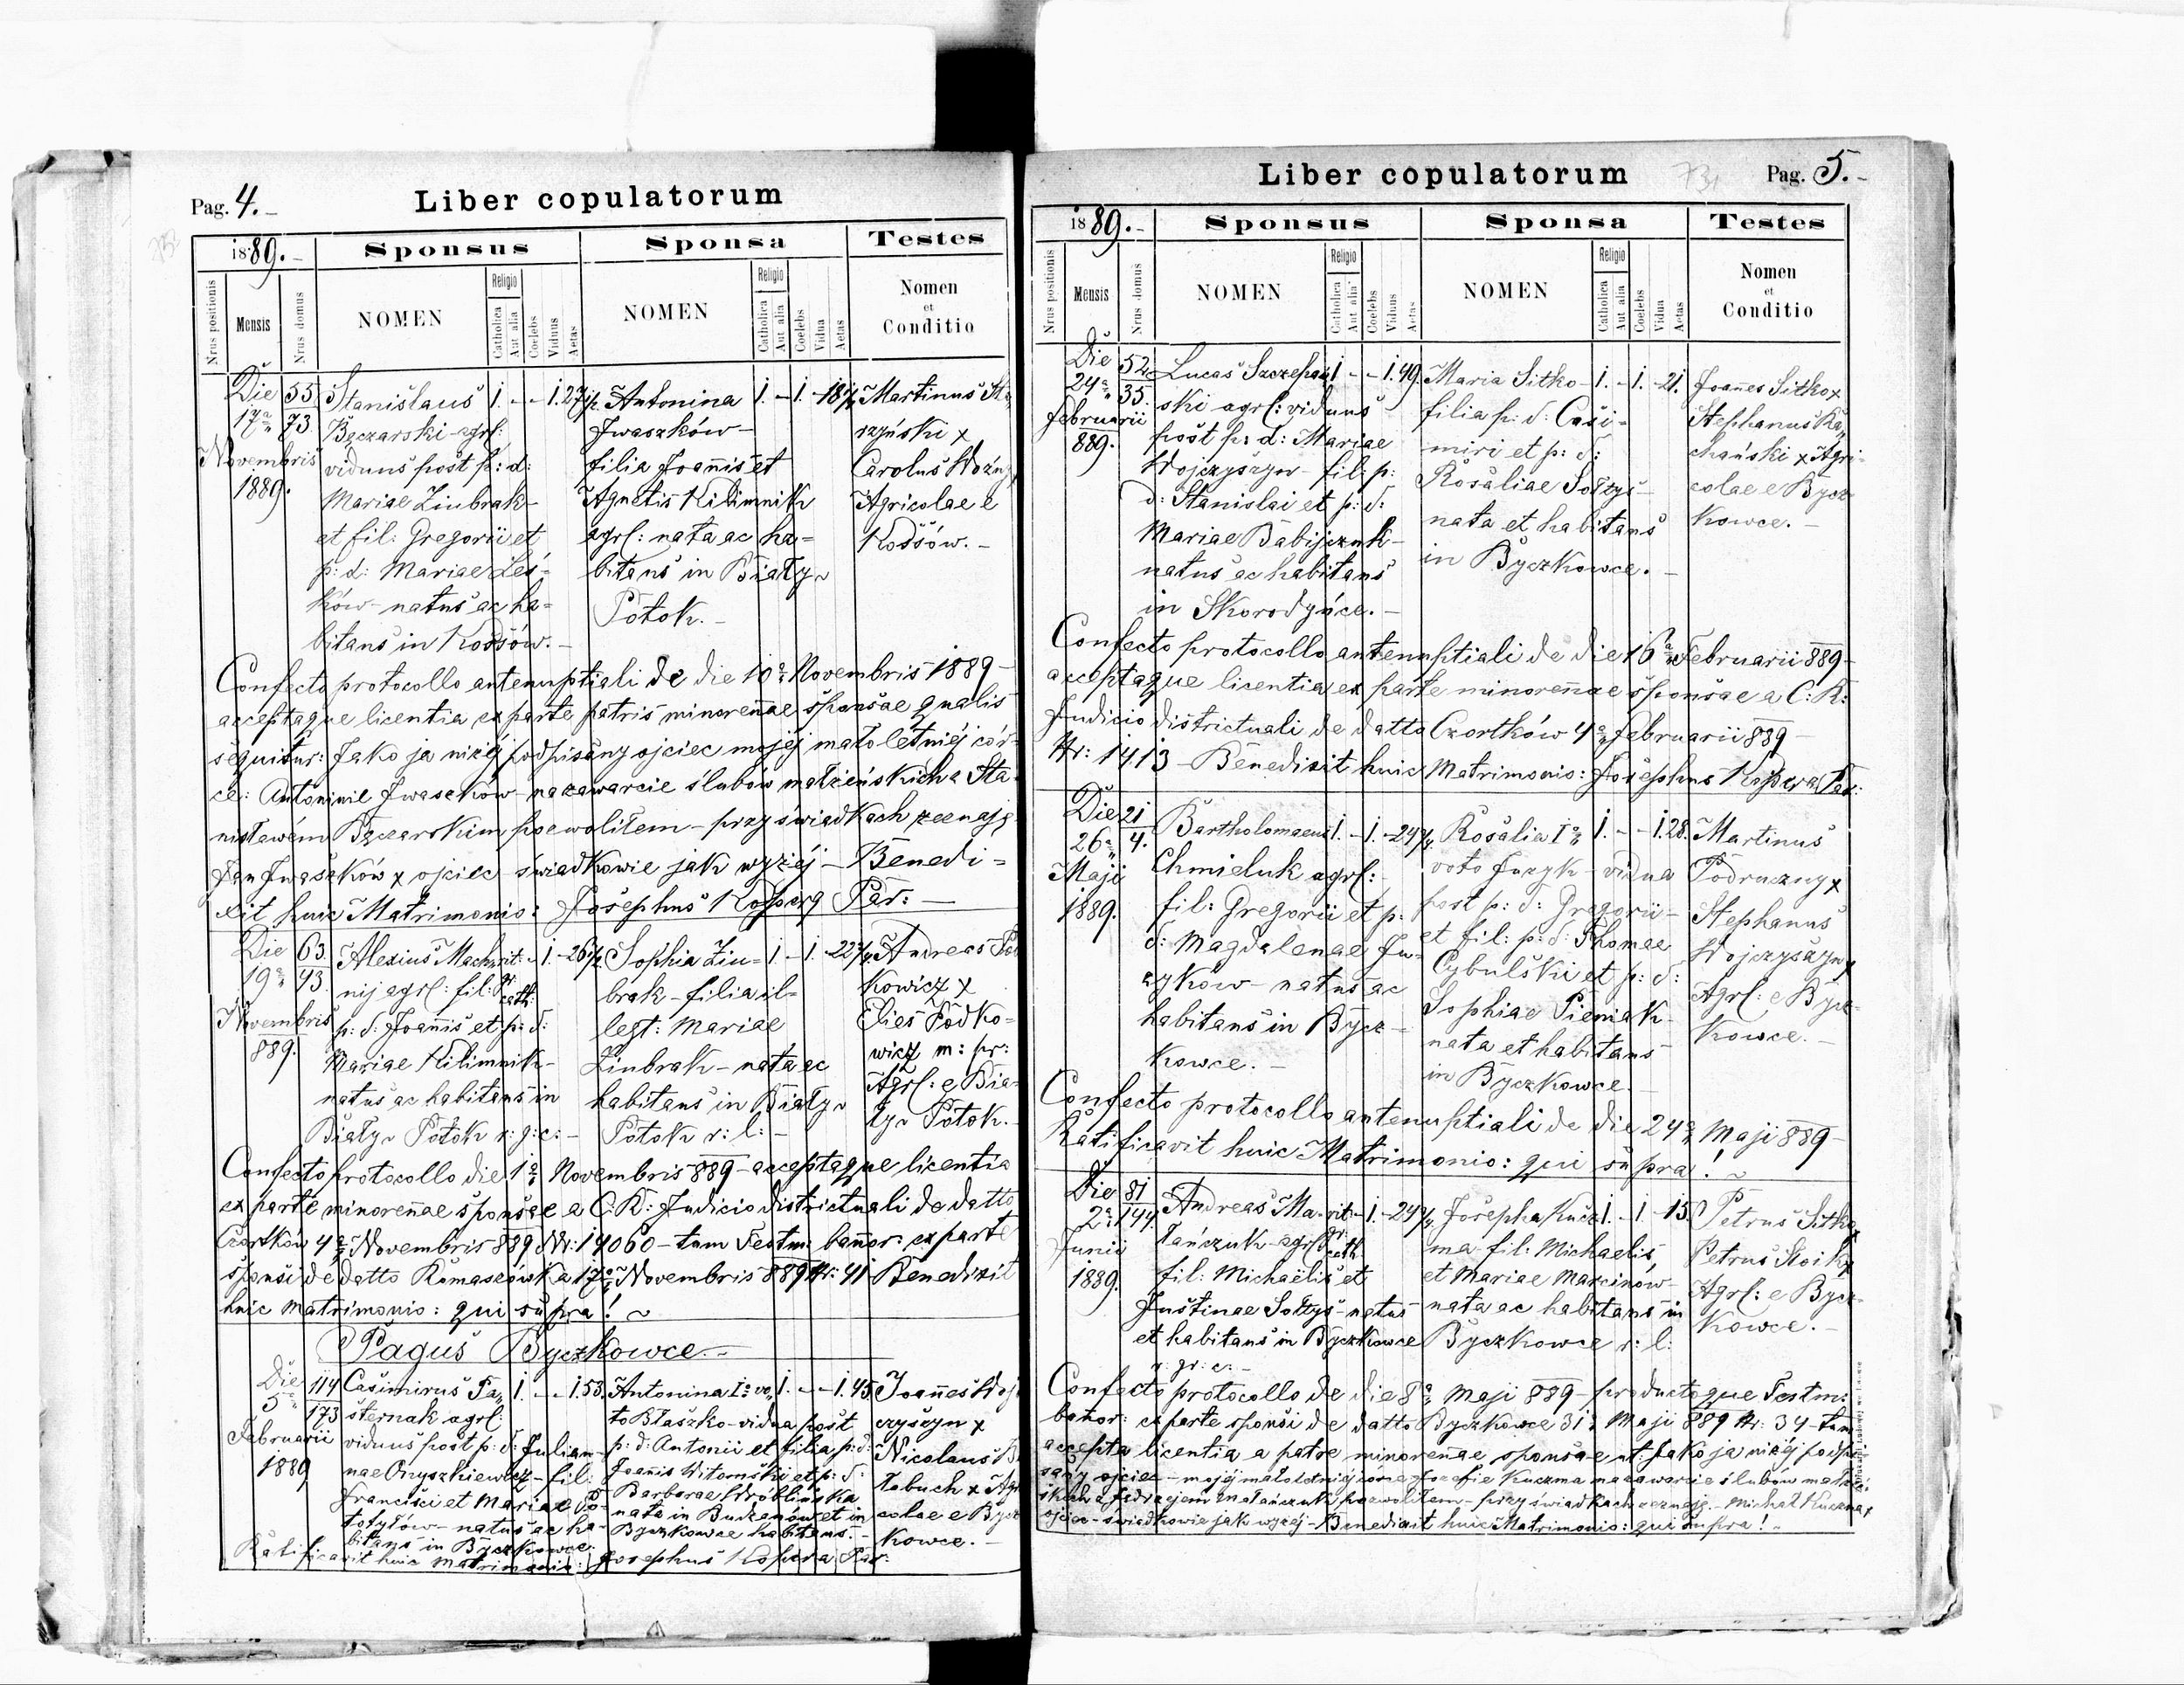 Pag. 4.-
Liber copulatorum
1889.-
Sponsus
Sponsa
Testes
Nrus positionis
Mensis
Nrus domus
NOMEN
Religio
Catholica
Aut alia
Coelebs
Viduus
Aetas
NOMEN
Religio
Catholica
Aut alia
Coelebs
Vidua
Aetas
Nomen
et
Conditio
Die
17a
Novembris
1889.
55
73.
Stanislaus
Bęczarski - agrl:
viduus post p: d:
Mariae Ziubrak-
et fil: Gregorii et
p: d: Mariae Leś-
ków - natus ac ha=
bitans in Kossów.-
1. - - 1. 27 1/2
Antonina
Jwaszków-
filia Joannis et
Agnetis Kilimnik
agrl: nata ac ha=
bitans in Biały
Potok.-
1. - 1. - 18
Martinus
rzyński x
Carolus Woźny
Agricolae e
Kossów.-
Confecto protocollo antenuptiali de die 10a Novembris 1889-
acceptaque licentia ex parte patris minorennae sponsae qualis
sequitur: Jako ja niżéj podpisany ojciec mojéj małoletniéj cór-
ce: Antoninie Jwaszków - na zawarcie ślubów małżeńskich z Sta-
nisławém Bęczarskim pozwoliłem - przy świadkach zeznaję
Jan Jwaszków x ojciec świadkowie jak wyżéj - Benedi=
xit huic Matrimonio: Josephus Kopera Par:-
Die
19a
Novembris
889.
63.
93.
Alexius Mach
nij agrl: fil:
p: d: Joannis et p: d:
Mariae Kilimnik-
natus ac habitans in
Biały Potok r: g: c:-
rit.
gr
cath:
- 1. - 26 1/2
Sophia Ziu=
brak - filia il=
legt: Mariae
Ziubrak - nata ac
habitans in Biały
Potok r: l:-
1 - 1. - 22
Andreas
kowicz x
Elies Podko=
wicz m: pr:
Agrl: e Bia=
ły Potok.-
Confecto protocollo die 1a Novembris 889 - acceptaque licentia
ex parte minorennae sponsae a C: K: Judicio districtuali de datto
Czortków 4a Novembris 889 Nr: 14060 - tum Testm: bannor: ex parte
sponsi de datto Romaszówka 17a Novembris 889 Nr: 41 - Benedixit
huic matrimonio: qui supra!
Pagus Byczkowce.-
Die
5a
Februarii
1889
114
173
Casimirus Pa
sternak agrl:
viduus post p: d: Julian-
nae Onyszkiewicz - fil:
Francisci et Mariae Po-
tofyłów - natus ac ha-
bitans in Byczkowce.
1. - - 1. 53.
Antonina Io vo
to Błaszko - vidua post
p: d: Antonii et filia p: d:
Joannis Witomski et p: d:
Barbarae Wróblińska
nata in Budzanów et in
Byczkowce habitans.-
1. - - 1. 45
Joannes Woj
czyszyn x
Nicolaus
łabuch x Agri
colae e Bycz
kowce.-
Ratificavit huic matrimonio: Josephus Kopera Par:
Liber copulatorum
731
Pag. 5.-
1889.-
Sponsus
Sponsa
Testes
Nrus positionis
Mensis
Nrus domus
NOMEN
Religio
Catholica
Aut alia
Coelebs
Viduus
Aetas
NOMEN
Religio
Catholica
Aut alia
Coelebs
Vidua
Aetas
Nomen
et
Conditio
Die
24a
Februarii
889.
52
35.
Lucas Szczepań
ski agrl: viduus
post p: d: Mariae
Wojczyszyn - fil: p:
d: Stanislai et p: d:
Mariae Babijczuk-
natus ac habitans
in Skorodyńce.-
1 - - 1. 49.
Maria Sitko-
filia p: d: Casi-
miri et p: d:
Rosaliae Sołtys-
nata et habitans
in Byczkowce.-
1. - 1. - 21.
Joannes Sitko x
Stephanus Ka
chański x Agri-
colae e Bycz
kowce.-
Confecto protocollo antenuptiali de die 16a Februarii 889-
acceptaque licentia ex parte minorennae sponsae a C: K:
Judicio districtuali de datto Czortków 4a Februarii 889-
Nr: 1413 - Benedixit huic Matrimonio: Josephus Kopera Par:
Die
26a
Maji
1889.
21
4.
Bartholomaeus
Chmieluk agrl:
fil: Gregorii et p:
d: Magdalenae Ju-
zyków - natus ac
habitans in Bycz-
kowce.-
1. - 1. - 24
Rosalia Io
voto Juzyk - vidua
post p: d: Gregorii-
et fil: p: d: Thomae
Cybulski et p: d:
Sophiae Pieniak-
nata et habitans-
in Byczkowce.-
1. - - 1. 28.
Martinus
Podruczny x
Stephanus
Wojczyszyn x
Agrl: e Bycz-
kowce.-
Confecto protocollo antenuptiali de die 24a Maji 889-
Ratificavit huic Matrimonio: qui supra!
Die
2a
Junii
1889.
81
144.
Andreas Ma-
łańczuk - agrl:
fil: Michaëlis et
Justinae Sołtys - natus
et habitans in Byczkowce
r: gr: c:-
rit.
gr.
cath.
- 1. - 24
Josepha Kucz
ma - fil: Michaelis
et Mariae Marcinów-
nata ac habitans in
Byczkowce r: l:
1. - 1 - 15.
Petrus Sitko x
Petrus Stoik x
Agrl: e Bycz-
kowce.-
Confecto protocollo de die 8a Maji 889 - productoque Testm:
banor: ex parte sponsi de datto Byczkowce 31a Maji 889 Nr: 34 - tum
accepta licentia a patre minorennae sponsae ut: Jako ja niżéj podpi-
sany ojciec - mojéj małoletniéj córce Józefie Kuczma na zawarcie ślubów małżeń-
skich z Jędrzejem Małańczuk pozwoliłem - przy świadkach zeznaję - Michał Kuczma x
ojciec - świadkowie jak wyżéj - Benedixit huic Matrimonio: qui supra!-